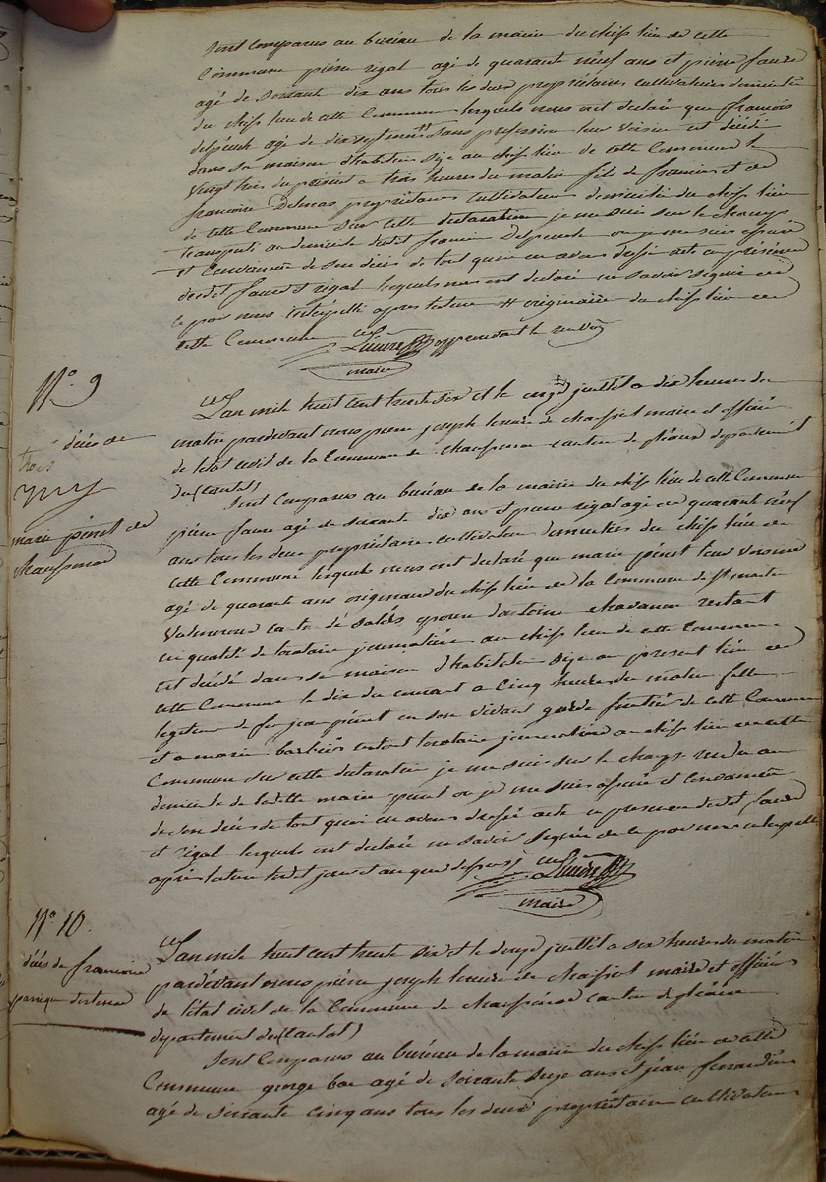 Sont comparus au bureau de la mairie du chef lieu de cette
Commune pierre rigal agé de quarante neuf ans et pierre faure
agé de soixante dix ans tous les deux propriétaires cultivateurs domiciliés
du chef lieu de cette Commune lesquels nous ont declaré que françois
delpeuch agé de dix sept ans # sans profession leur voisin est décédé
dans sa maison d'habitation size au chef lieu de cette Commune le
vingt trois du présent a trois heures du matin fils de francois et de
francoise Delmas propriétaires cultivateurs domiciliés du chef lieu
de cette Commune sur cette declaration je me suis sur le champ
transporté au domicile dudit francois Delpeuch ou je me suis assuré
et Convaincu de son décès de tout quoi en avons dressé acte en présence
desdit faure et rigal lesquels nous ont declaré ne savoir signer de
ce par nous interpellé apres lecture # originaire du chef lieu de
cette Commune approuvant le renvoi
maire
N° 9
décès de
marie pinet de
L'an mil huit cent trente six et le onze juillet a dix heures du
matin pardevant nous pierre joseph maire et officier
de letat civil de la Commune de canton de pleaux departement
du (Cantal)
Sont Comparus au bureau de la mairie du chef lieu de cette Commune
pierre faure agé de soixante dix ans et pierre rigal agé de quarante neuf
ans tous les deux propriétaires cultivateurs domiciliés du chef lieu de
cette Commune lesquels nous ont declaré que marie pinet leur voisine
agé de quarante ans originaire du chef lieu de la Commune de St martin
Valmeroux canton de Salers epouse d'antoine chavanne restant
en qualité de locataire journalière au chef lieu de cette Commune
est décédé dans sa maison d'habitation size au présent lieu de
cette Commune le dix du courant a Cinq heures du matin fille
legitime de feu jean pinet en son vivant garde forêtié de cette Commune
et a marie restant locataire journalière au chef lieu de cette
Commune sur cette declaration je me suis sur le champ rendu au
domicile de ladite marie pinet ou je me suis assuré et Convaincu
de son décès de tout quoi en avons dressé acte en présence dedit faure
et rigal lesquels ont declaré ne savoir signer de ce par nous interpellé
apres lecture lesdit jour et an que dessus
maire
N° 10.
décès de francoise
L'an mil huit cent trente six et le douze juillet a six heures du matin
pardevant nous pierre joseph maire et officier
de l'état civil de la Commune de canton de pleaux
departement du (Cantal)
Sont Comparus au bureau de la mairie du chef lieu de cette
Commune george agé de soixante seize ans et jean
agé de soixante cinq ans tous les deux propriétaires cultivateurs